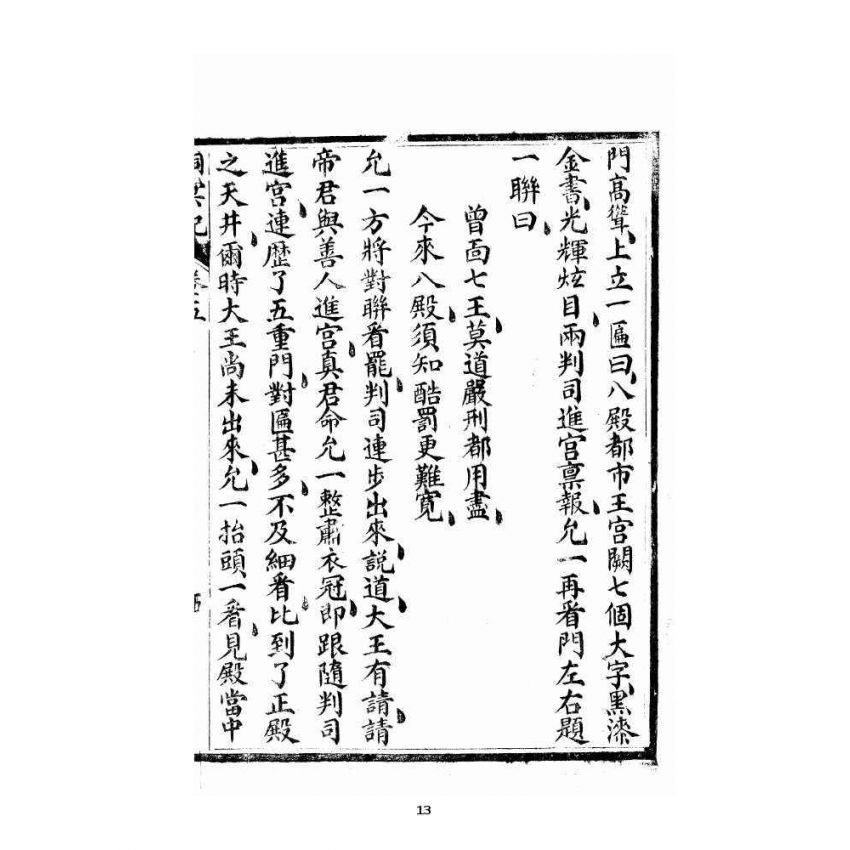 門高聳、上立一匾曰、八殿都市王宮闕七個大字、黑漆
金書、光輝炫目、兩判司進宮稟報、允一再看門左右題
一聯曰、
曾面七王、莫道嚴刑都用盡、
今來八殿、須知酷罰更難寬、
允一方將對聯看罷、判司連步出來、説道、大王有請、請
帝君與善人進宮、真君命允一整肅衣冠、即跟隨判司
進宮、連歷了五重門、對匾甚多、不及細看、比到了正殿
之天井、爾時大王尚未出來、允一抬頭一看、見殿當中
洞冥記 卷五
13